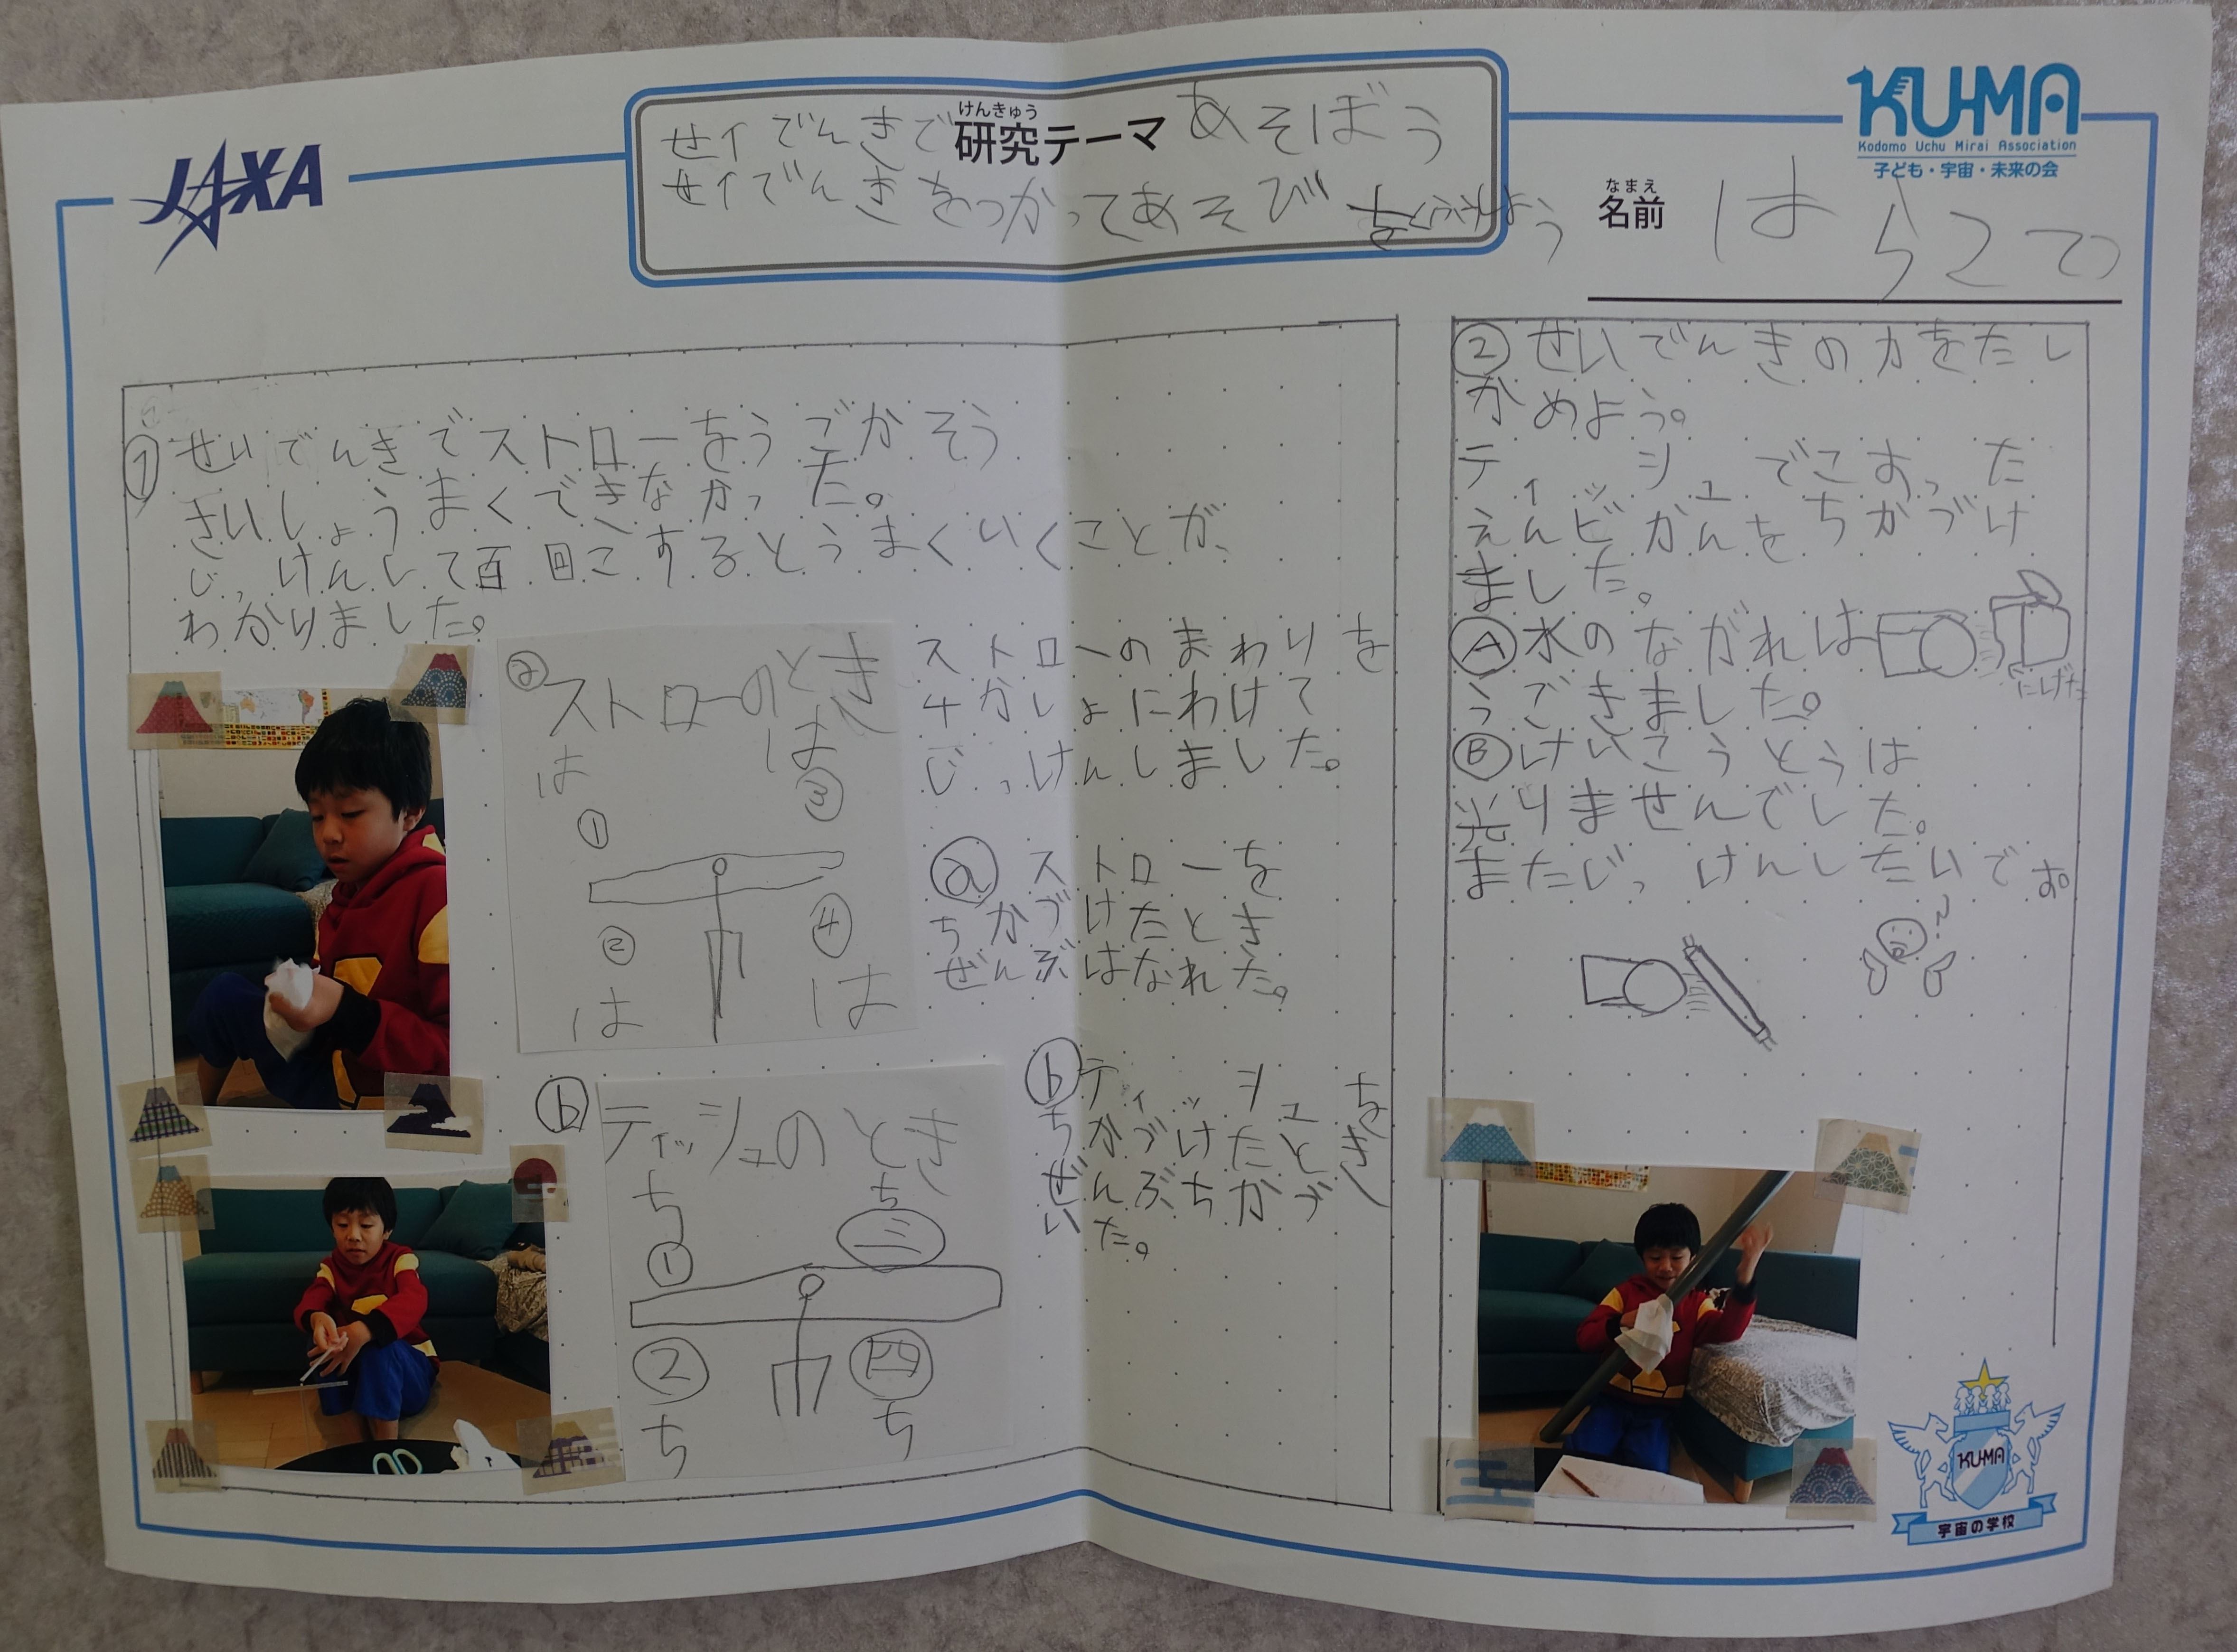 JAXA
けんきゅう
研究テーマ
セイでんきで あそぼう
セイでんきをつかってあそび
KUMA
Kodomo Uchu Mirai Association
子ども・宇宙・未来の会
なまえ
名前
① せいでんきでストローをうごかそう
さいしょうまくできなかった。
じっけんして百回こするとうまくいくことが、
わかりました。
ⓐ
ストローのとき
は は
① ③
② ④
は は
ストローのまわりを
4かしょにわけて
じっけんしました。
ⓐ ストローを
ちかづけたとき
ぜんぶはなれた。
ⓑ
ティッシュのとき
ち ち
① 三
② 四
ち ち
ⓑ ティッシュを
ちかづけたとき
ぜんぶちかづ
いた。
② せいでんきの力をたし
かめよう。
ティッシュでこすった
えんビかんをちかづけ
ました。
Ⓐ 水のながれは
うごきました。
にげた
Ⓑ けいこうとうは
光りませんでした。
またじっけんしたいです。
KUMA
宇宙の学校